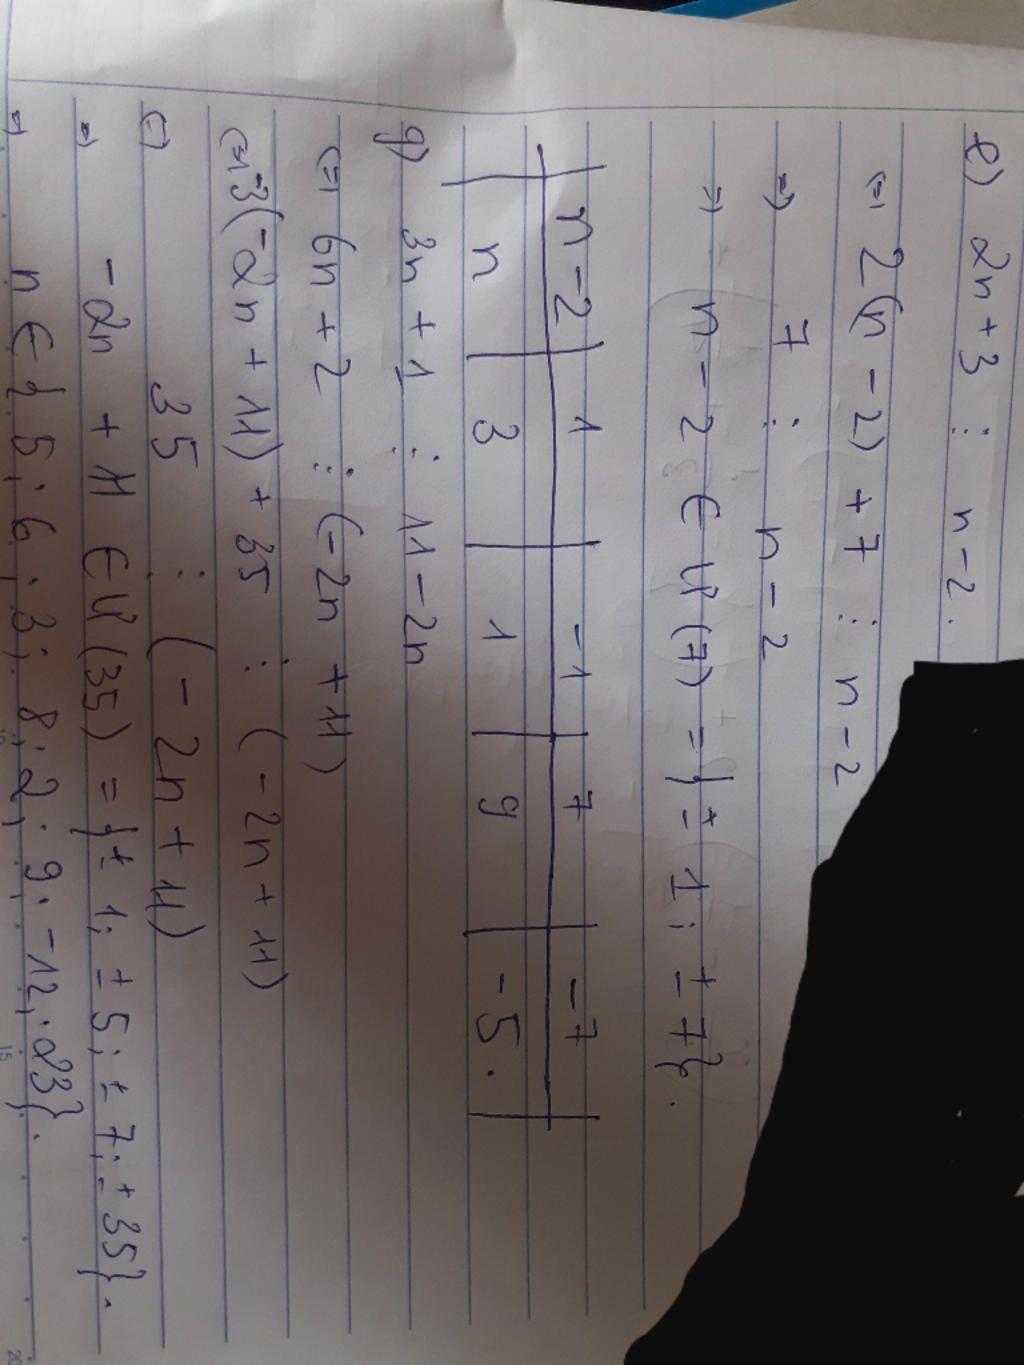 e) 2n + 3 ⋮ n - 2.
(=) 2(n - 2) + 7 ⋮ n - 2
=) 7 ⋮ n - 2
=) n - 2 ∈ Ư(7) = { ± 1; ± 7}.
n - 2 | 1 | -1 | 7 | -7
n | 3 | 1 | 9 | -5.
g) 3n + 1 ⋮ 11 - 2n
(=) 6n + 2 ⋮ (-2n + 11)
(=) -3(-2n + 11) + 35 ⋮ (-2n + 11)
(=) 35 ⋮ (-2n + 11)
=) -2n + 11 ∈ Ư(35) = {± 1; ± 5; ± 7; ± 35}.
=) n ∈ { 5; 6; 3; 8; 2; 9; -12; 23}.